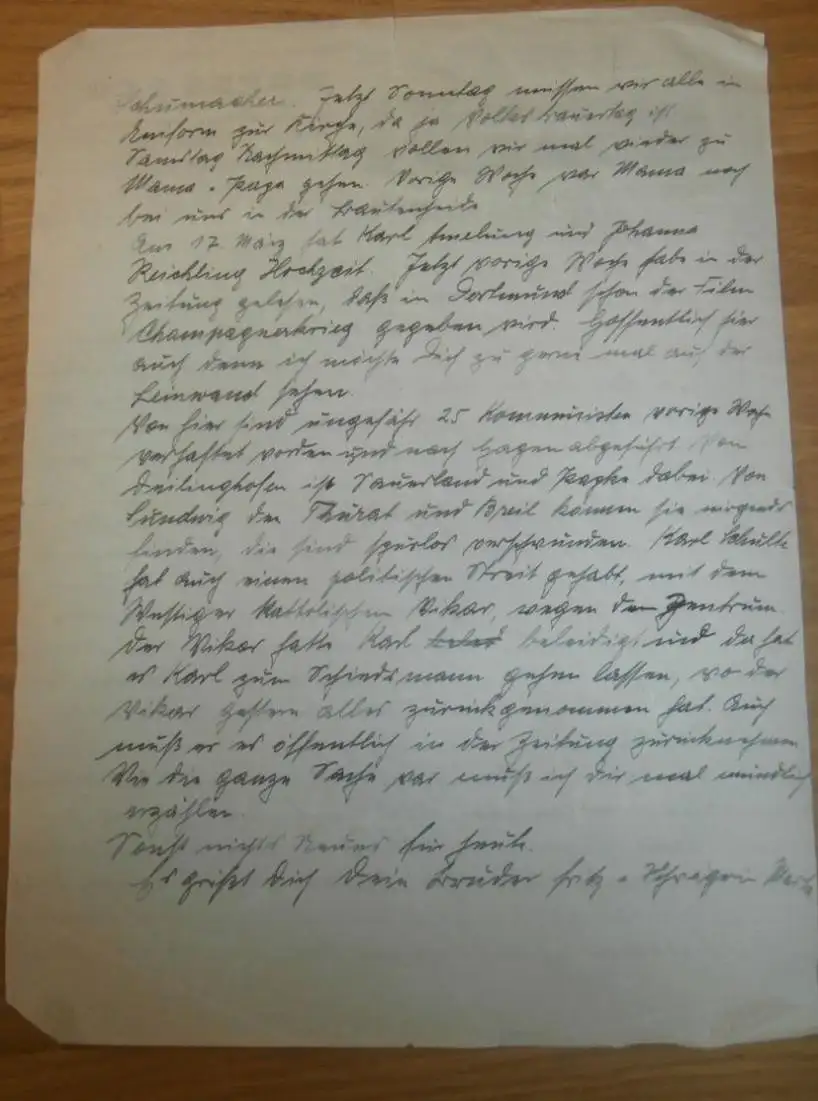 Schumacher. Jetzt Sonntag müssen wir alle in
Uniform zur Kirche, da ja Volkstrauertag ist
Samstag Nachmittag wollen wir mal wieder zu
Mama u. Papa gehen. Vorige Woche war Mama noch
bei uns in der
Am 17 März hat Karl Amelung und Johanna
Reichling Hochzeit. Jetzt vorige Woche habe in der
Zeitung gelesen, daß in Dortmund schon der Film
Champagnerkrieg gegeben wird. Hoffentlich hier
auch denn ich möchte Dich zu gern mal auf der
Leinwand sehen.
Von hier sind ungefähr 25 Kommunisten vorige Woche
verhaftet worden und nach Hagen abgeführt. Von
Deilinghofen ist Sauerland und Papke dabei. Von
Sundwig den Thurat und Breil können sie nirgends
finden, die sind spurlos verschwunden. Karl Schulte
hat auch einen politischen Streit gehabt, mit dem
Westiger kattolischen Vikar, wegen dem Zentrum.
Der Vikar hatte Karl beleidigt und da hat
er Karl zum Schiedsmann gehen lassen, wo der
Vikar gestern alles zurückgenommen hat. Auch
muß er es öffentlich in der Zeitung zurücknehmen
Wie die ganze Sache war muß ich dir mal mündlich
erzählen.
Sonst nichts Neues für heute.
Es grüßt Dich Dein Bruder Fritz u. Schwägerin